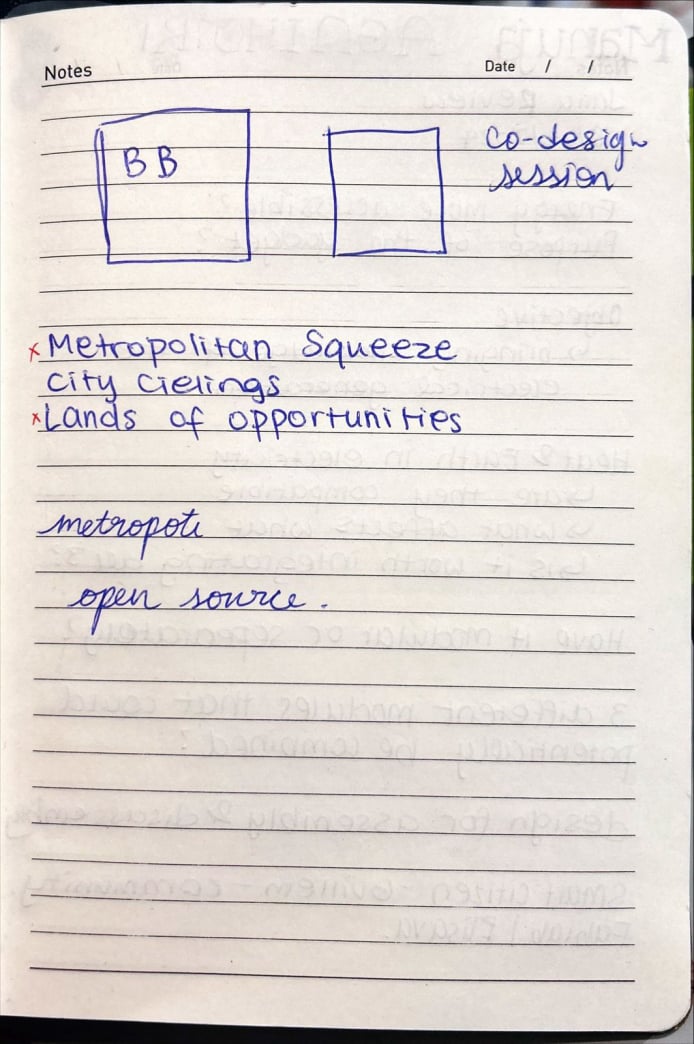 Notes
Date / /
BB
co-design
session
x Metropolitan Squeeze
City Cielings
x Lands of opportunities
metropoti
open source.